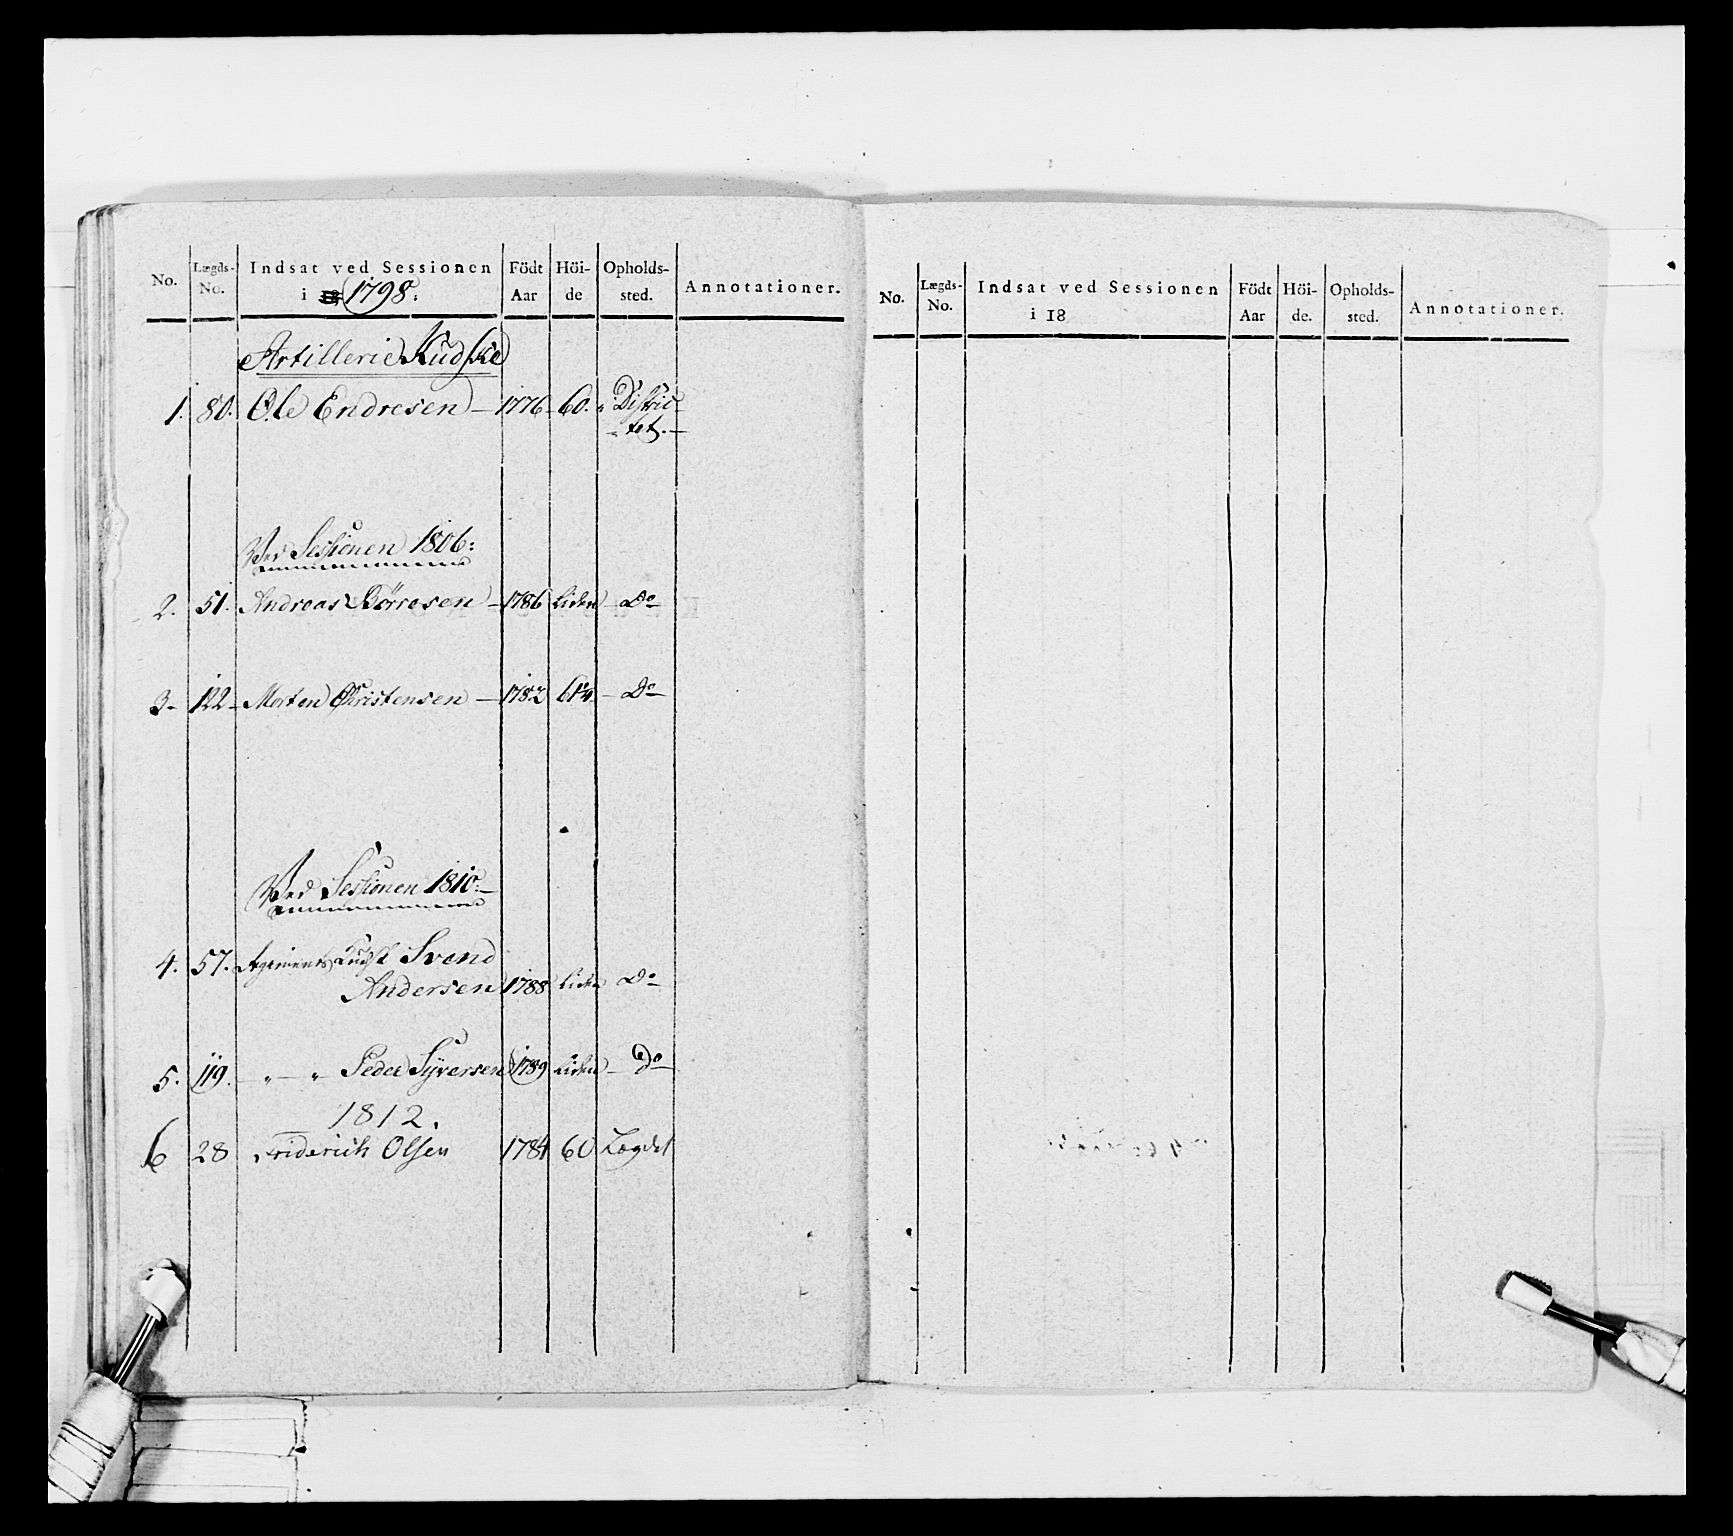 No. Lægds-No. Indsat ved Sessionen i 1798: Födt Aar Höi-de Opholds-sted. Annotationer.
Artillerie Kudske
1. 80. Ole Endresen – 1776 60. Distric-
tet.
Ved Sessionen 1806:
2. 51. Andreas Börresen – 1786 Liden Do
3 122 Morten Christensen – 1782 61¼ Do
Ved Sessionen 1810:
4. 57. Regiments Kudsk Svend
Andersen 1788 Liden Do
5. 119. „ – „ Peder Syversen 1789 Liden Do
1812.
6 28 Friderich Olsen 1784 60 Lægdet
No. Lægds-No. Indsat ved Sessionen i 18 Födt Aar Höi-de. Opholds-sted. Annotationer.